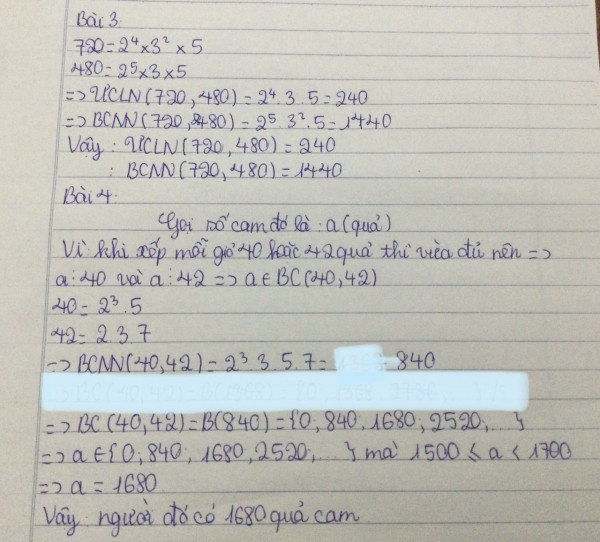 Bài 3:
720 = 2⁴ x 3² x 5
480 = 2⁵ x 3 x 5
=> ƯCLN(720, 480) = 2⁴. 3. 5 = 240
=> BCNN(720, 480) = 2⁵. 3². 5 = 1440
Vậy : ƯCLN(720, 480) = 240
: BCNN(720, 480) = 1440
Bài 4:
Gọi số cam đó là : a (quả)
Vì khi xếp mỗi giỏ 40 hoặc 42 quả thì vừa đủ nên =>
a ⋮ 40 và a ⋮ 42 => a ∈ BC(40, 42)
40 = 2³. 5
42 = 2. 3. 7
=> BCNN(40, 42) = 2³. 3. 5. 7 = 840
=> BC(40, 42) = B(840) = {0; 840; 1680; 2520; ...}
=> a ∈ {0; 840; 1680; 2520; ...} mà 1500 ≤ a < 1700
=> a = 1680
Vậy người đó có 1680 quả cam